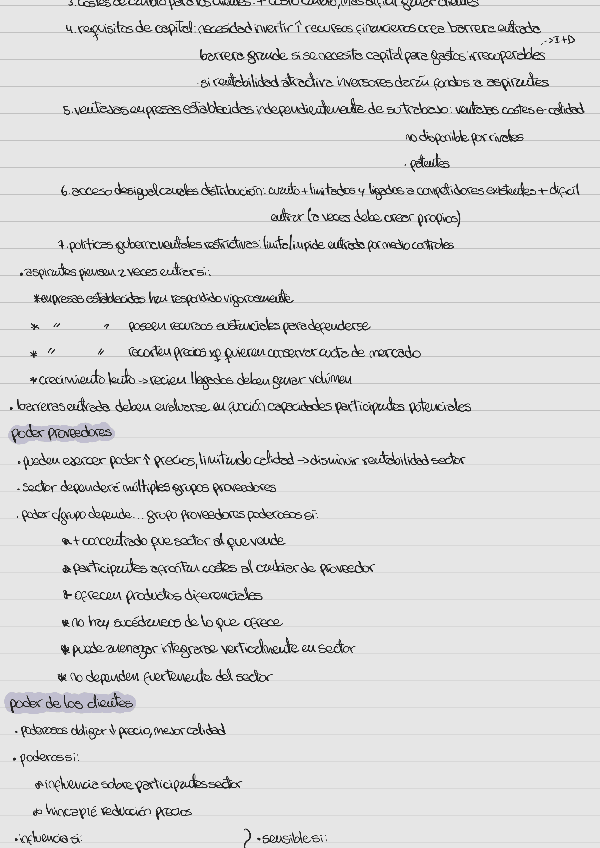 3. costes de cambio para los clientes: + costo cambio, mas dificil ganar clientes
4. requisitos de capital: necesidad invertir ↑ recursos financieros crea barrera entrada
→ I+D
barrera grande si se necesita capital para gastos irrecuperables
si rentabilidad atractiva inversores darán fondos a aspirantes
5. ventajas empresas establecidas independientemente de su trabajo: ventajas costes o calidad
no disponible por rivales
· patentes
6. acceso desigual canales distribución: cuanto + limitados y ligados a competidores existentes + difícil
entrar (a veces debe crear propios)
7. políticas gubernamentales restrictivas: limita/impide entrada por medio controles
· aspirantes piensen 2 veces entrar si:
* empresas establecidas han respondido vigorosamente
* " " poseen recursos sustanciales para defenderse
* " " recorten precios xq quieren conservar cuota de mercado
* crecimiento lento → recien llegados deben ganar volúmen
· barreras entrada deben evaluarse en función capacidades participantes potenciales
poder proveedores
· pueden ejercer poder ↑ precios, limitando calidad → disminuir rentabilidad sector
· sector dependerá múltiples grupos proveedores
· poder c/grupo depende... grupo proveedores poderosos si:
* + concentrado que sector al que vende
* participantes afrontan costes al cambiar de proveedor
* ofrecen productos diferenciales
* no hay sucedáneos de lo que ofrece
* puede amenazar integrarse verticalmente en sector
* no dependen fuertemente del sector
poder de los clientes
· poderosos obligar ↓ precio, mejor calidad
· poderoso si:
* influencia sobre participantes sector
* hincapié reducción precios
· influencia si: ) · sensible si: